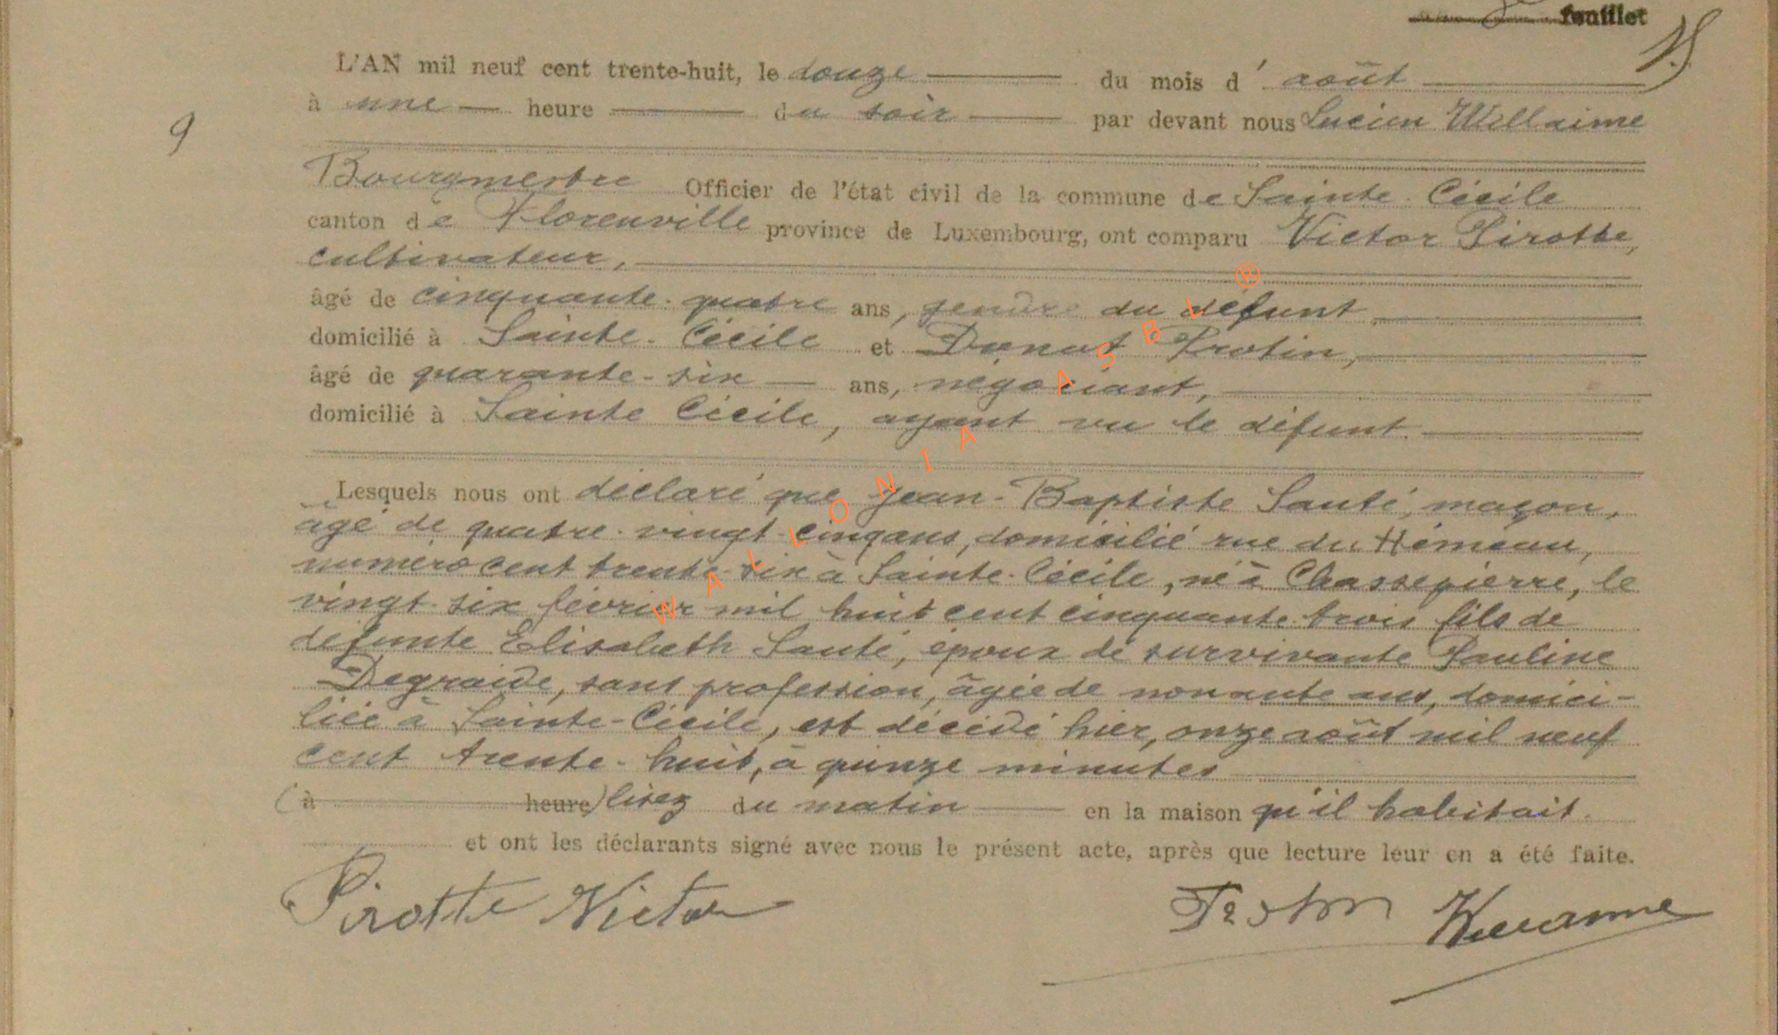 feuillet
15
L'AN mil neuf cent trente-huit, le douze du mois d' août
à une heure du soir par devant nous Lucien Willaime
9
Bourgmestre Officier de l'état civil de la commune de Sainte-Cécile
canton de Florenville province de Luxembourg, ont comparu Victor Pirotte,
cultivateur,
âgé de cinquante-quatre ans, gendre du défunt
domicilié à Sainte-Cécile et Donat Frotin,
âgé de quarante-six ans, négociant,
domicilié à Sainte Cécile, ayant vu le défunt.
Lesquels nous ont déclaré que Jean-Baptiste Santé, maçon,
âgé de quatre-vingt-cinq ans, domicilié rue du Héméau,
numéro cent trente-six à Sainte-Cécile, né à Chassepierre, le
vingt-six février mil huit cent cinquante-trois fils de
défunte Elisabeth Santé, époux de survivante Pauline
Degraide, sans profession, âgée de nonante ans, domici-
liée à Sainte-Cécile, est décédé hier, onze août mil neuf
cent trente-huit, à quinze minutes
(à heure) lisez du matin en la maison qu'il habitait.
et ont les déclarants signé avec nous le présent acte, après que lecture leur en a été faite.
Pirotte Victor
WALLONIA ASBL ®